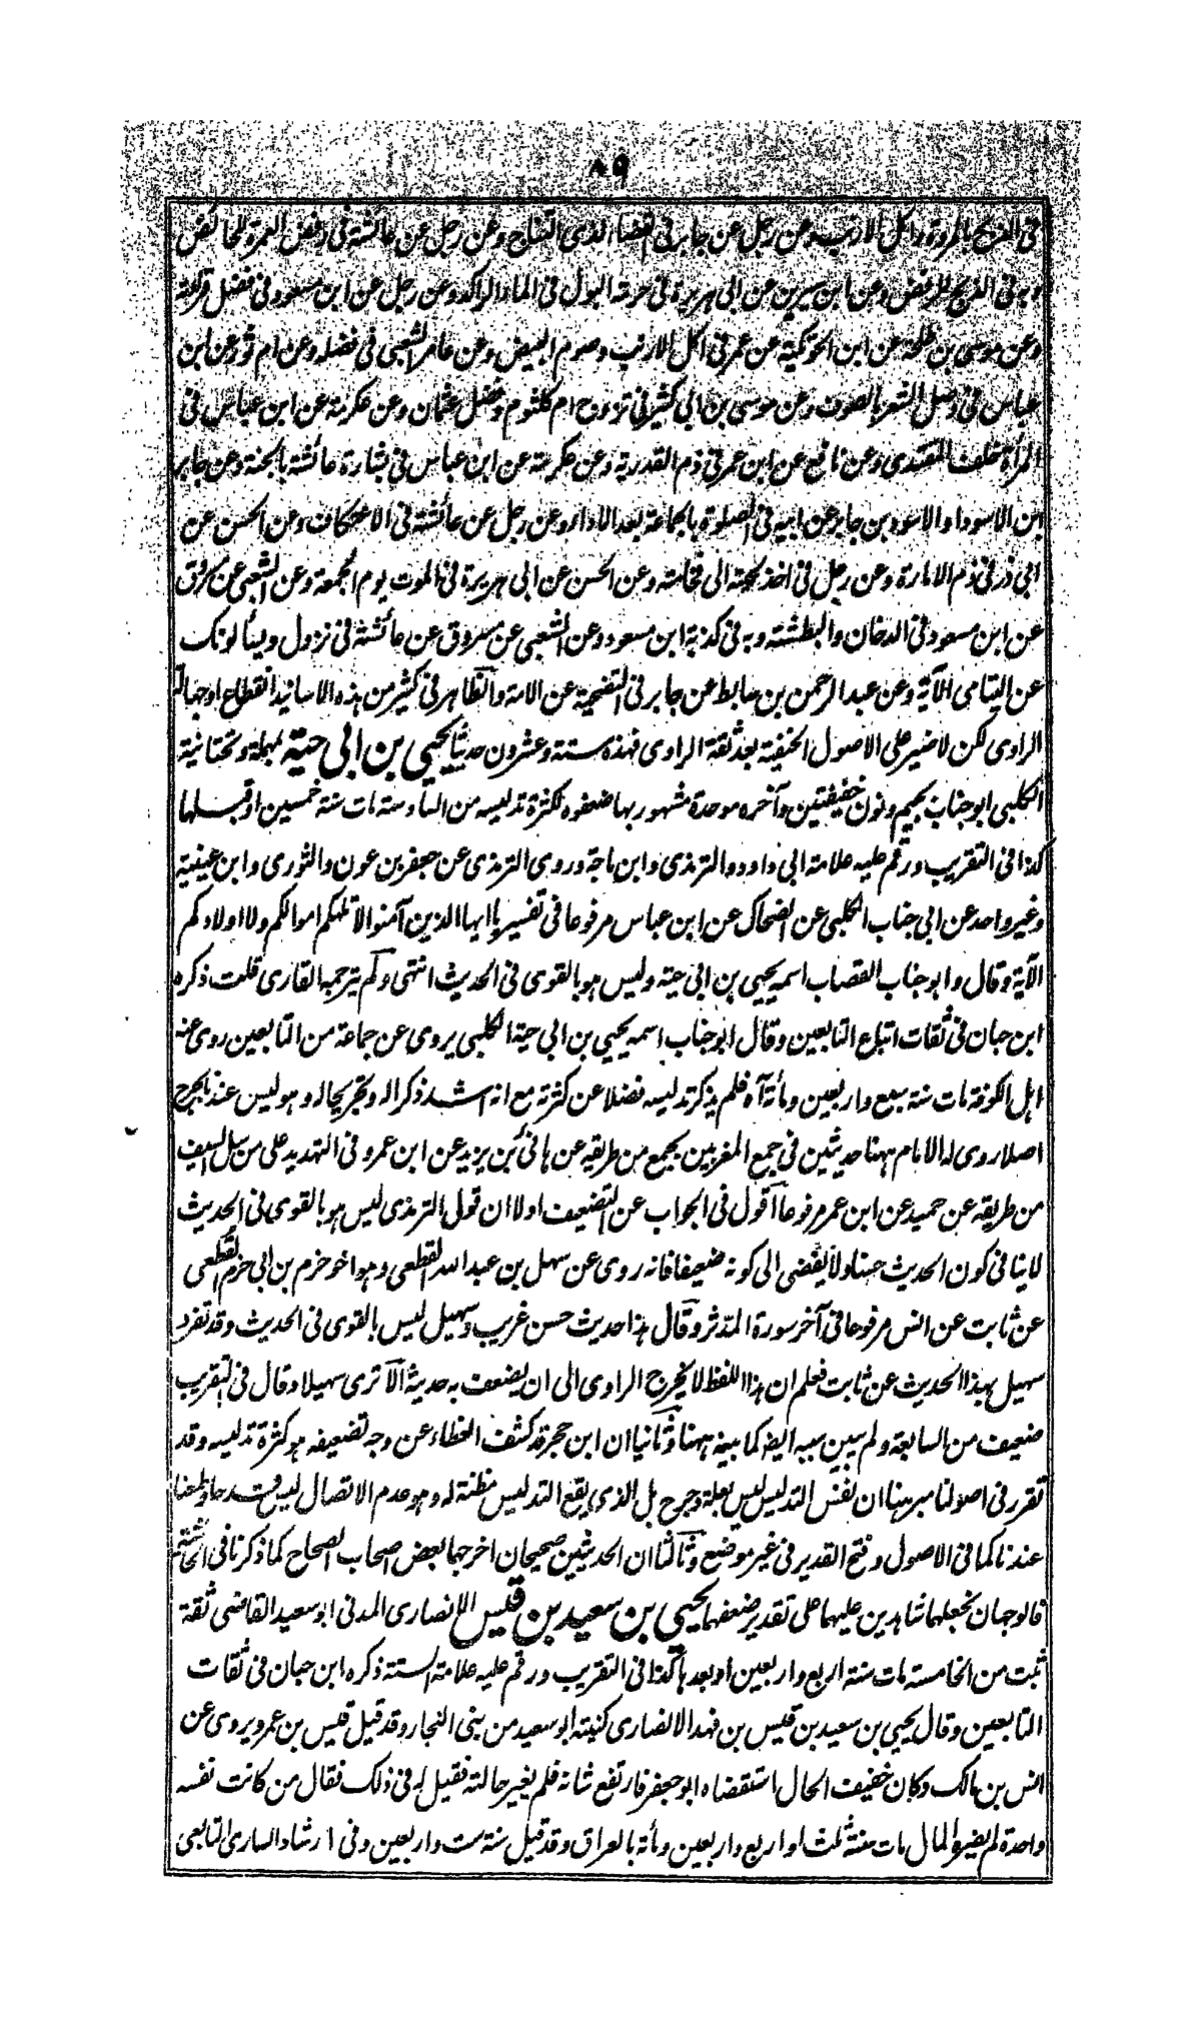 ٨٩
في الذبح بالمروة واكل الارنب وعن رجل عن جابر في القضاء لذي النتاج وعن رجل عن عائشة في رفض العمرة للحائض
وبه في الذبح للرفض وعن ابن سيرين عن ابي هريرة في حرمة البول في الماء الراكد وعن رجل عن ابن مسعود في فضل
وعن موسى بن طلحة عن ابن الحوتكية عن عمر في اكل الارنب وصوم البيض وعن عامر الشعبي في فضله وعن ام ثور عن ابن
عباس في وصل الشعر بالصوف وعن موسى بن ابي كثير في تزوج ام كلثوم وفضل عثمان وعن عكرمة عن ابن عباس في
المرأة خلف المقتدي وعن نافع عن ابن عمر في ذم القدرية وعن عكرمة عن ابن عباس في بشارة عائشة بالجنة وعن جابر
ابن الاسود او الاسود بن جابر عن ابيه في الصلوة بالجماعة بعد الاداء وعن رجل عن عائشة في الاعتكاف وعن الحسن عن
ابي ذر في ذم الامارة وعن رجل في اخذ لحية ابي قحافة وعن الحسن عن ابي هريرة في الموت يوم الجمعة وعن الشعبي عن مسروق
عن ابن مسعود في الدخان والبطشة وبه في كذبة ابن مسعود وعن الشعبي عن مسروق عن عائشة في نزول ويسألونك
عن اليتامى الآية وعن عبد الرحمن بن سابط عن جابر في التضحية عن الامة والظاهر في كثير من هذه الاسانيد انقطاع او جهالة
الراوي لكن لا ضير على الاصول الحنيفية بعد ثقة الراوي فهذه ستة وعشرون حديثا يحيى بن ابي حية بمهملة وتحتانية
الكلبي ابو جناب بجيم ونون خفيفتين وآخره موحدة مشهور بها ضعفوه لكثرة تدليسه من السادسة مات سنة خمسين او قبلها
كذا في التقريب ورقم عليه علامة ابي داود والترمذي وابن ماجة وروى الترمذي عن جعفر بن عون والثوري وابن عيينة
وغير واحد عن ابي جناب الكلبي عن الضحاك عن ابن عباس مرفوعا في تفسير يا ايها الذين آمنوا لا تلهكم اموالكم ولا اولادكم
الآية وقال وابو جناب القصاب اسمه يحيى بن ابي حية وليس هو بالقوي في الحديث انتهى ولم يترجمه القاري قلت ذكره
ابن حبان في ثقات اتباع التابعين وقال ابو جناب اسمه يحيى بن ابي حية الكلبي يروي عن جماعة من التابعين روى عنه
اهل الكوفة مات سنة سبع واربعين ومأة اه فلم يذكر تدليسه فضلا عن كثرته مع انه اشد ذكرا له وتجريحا له وهو ليس عندنا بجرح
اصلا روى له الامام ههنا حديثين في جمع المغربين بجمع من طريقه عن هانئ بن يزيد عن ابن عمر وفي التهديد على من سل السيف
من طريقه عن حميد عن ابن عمر مرفوعا اقول في الجواب عن التضعيف اولا ان قول الترمذي ليس هو بالقوي في الحديث
لا ينافي كون الحديث حسنا ولا يفضي الى كونه ضعيفا فانه روى عن سهل بن عبد الله القطعي وهو اخو حزم بن ابي حزم القطعي
عن ثابت عن انس مرفوعا في آخر سورة المدثر وقال هذا حديث حسن غريب وسهيل ليس بالقوي في الحديث وقد تفرد
سهيل بهذا الحديث عن ثابت فعلم ان هذا اللفظ لا يخرج الراوي الى ان يضعف به حديثه الا ترى سهيلا وقال في التقريب
ضعيف من السابعة ولم يبين سببه ايضا كما بينه ههنا وثانيا ان ابن حجر قد كشف الغطاء عن وجه تضعيفه هو كثرة تدليسه وقد
تقرر في اصولنا مبرهنا ان نفس التدليس ليس بعلة وجرح بل الذي يقع التدليس مظنة له وهو عدم الاتصال ليس
عندنا كما في الاصول وفتح القدير في غير موضع وثالثا ان الحديثين صحيحان اخرجهما بعض اصحاب الصحاح كما ذكرنا في الحاشية
فالوجهان نجعلهما شاهدين عليهما على تقدير ضعفهما يحيى بن سعيد بن قيس الانصاري المدني ابو سعيد القاضي ثقة
ثبت من الخامسة مات سنة اربع واربعين او بعدها كذا في التقريب ورقم عليه علامة الستة ذكره ابن حبان في ثقات
التابعين وقال يحيى بن سعيد بن قيس بن فهد الانصاري كنيته ابو سعيد من بني النجار وقد قيل قيس بن عمرو يروي عن
انس بن مالك وكان خفيف الحال استقضاه ابو جعفر فارتفع شانه فلم يغير حالته فقيل له في ذلك فقال من كانت نفسه
واحدة لم يغيره المال مات سنة ثلث او اربع واربعين ومأة بالعراق وقد قيل سنة ست واربعين وفي ارشاد الساري التابعي